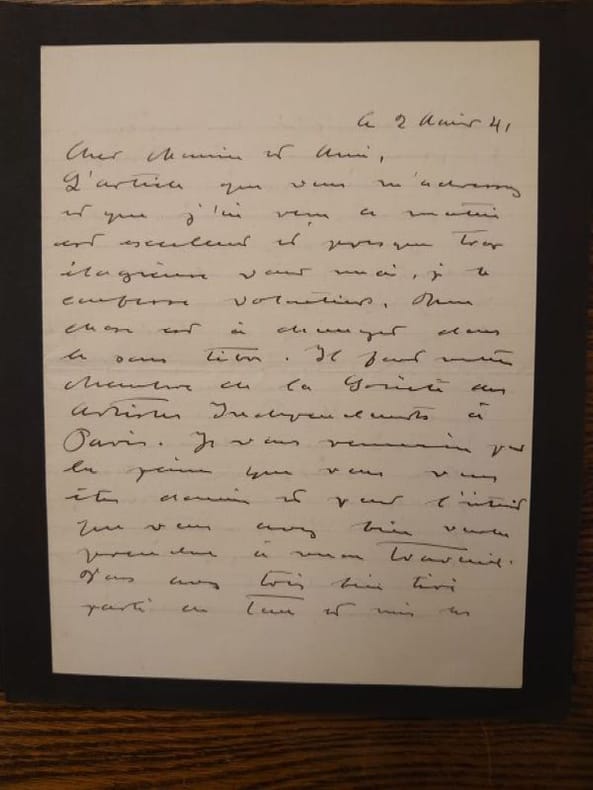 le 2 Août 41
Cher Monsieur et Ami,
L'article que vous m'adressez
et que j'ai reçu ce matin
est excellent et presque trop
élogieux pour moi, je le
confesse volontiers. Une
chose est à changer dans
le sous titre. Il faut mettre
membre de la Société des
Artistes Indépendants à
Paris. Je vous remercie pour
la peine que vous vous
êtes donnée et pour l'intérêt
que vous avez bien voulu
prendre à mon travail.
Vous avez très bien tiré
parti de tout et mis en